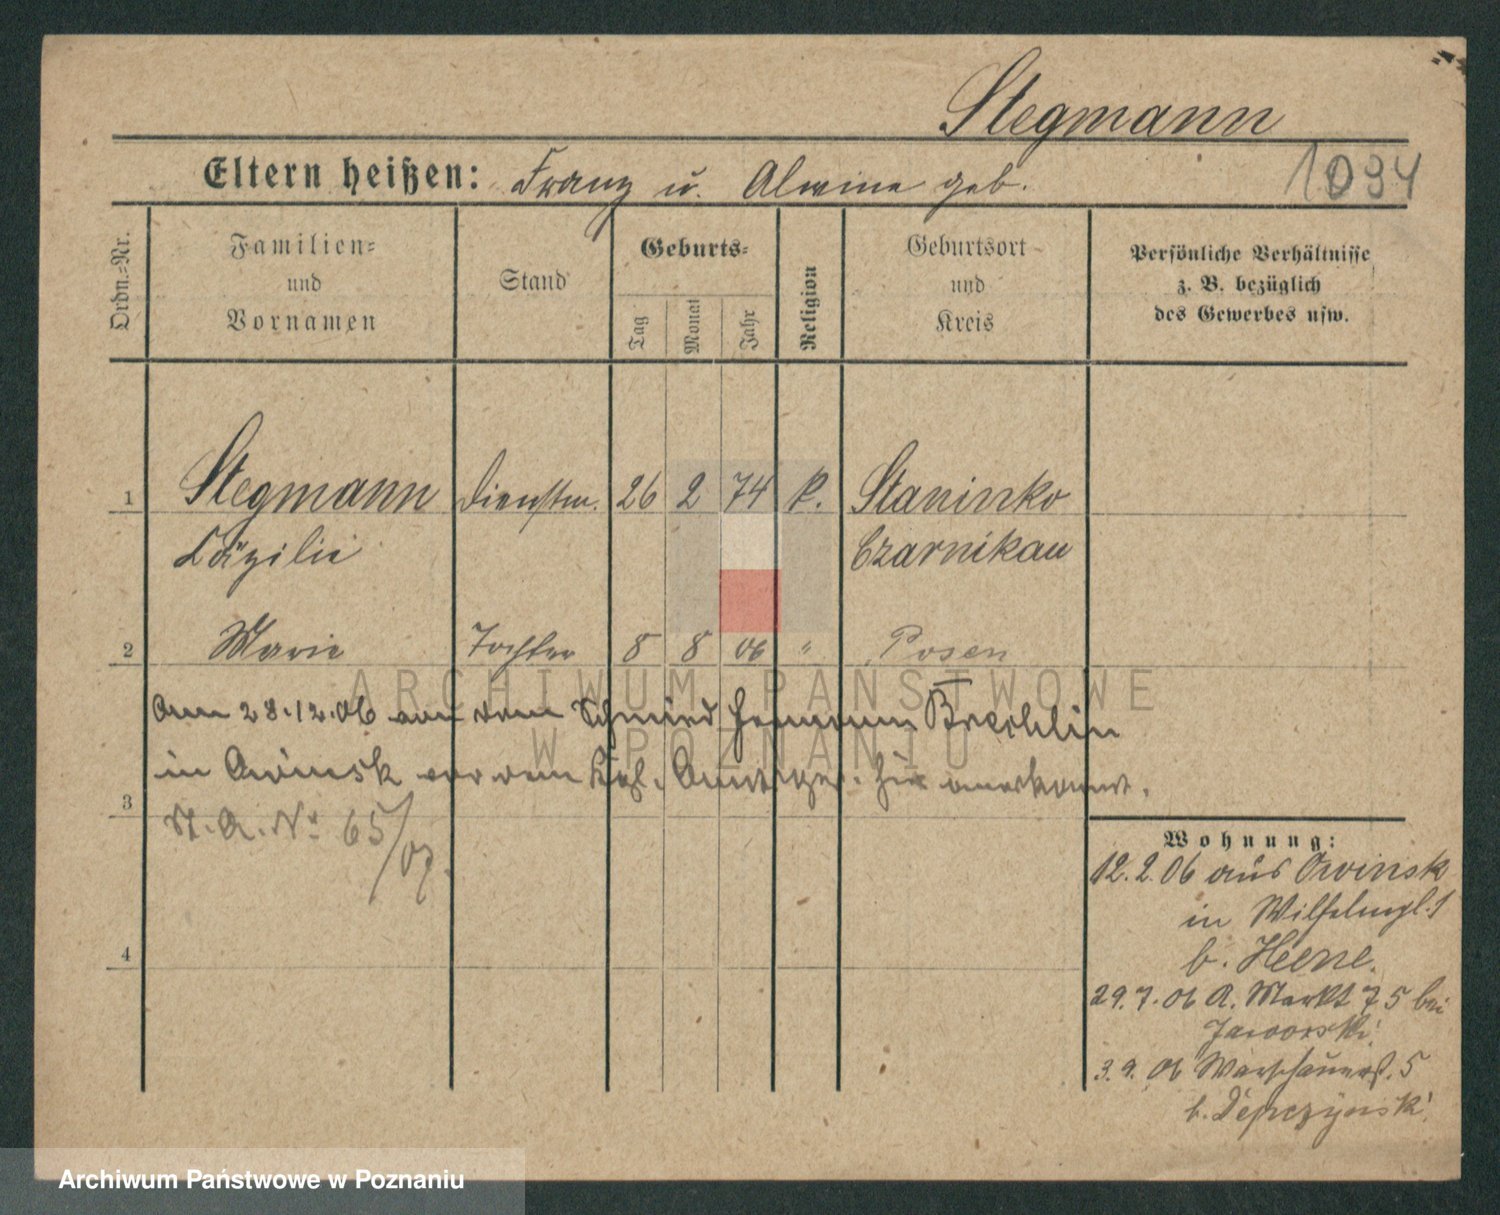 Stegmann
1094
Eltern heißen: Franz u. Alwine geb.
Ordn.-Nr.
Familien- und Vornamen
Stand
Geburts-
Tag
Monat
Jahr
Religion
Geburtsort und Kreis
Persönliche Verhältnisse
z. B. bezüglich
des Gewerbes usw.
1 Stegmann Dienstm. 26 2 74 k. Staninko
Cäzilie Czarnikau
2 Marie Tochter 8 8 06 " Posen
Am 28.12.06 von dem Schmied Hermann Brechlin
in Owinsk vor dem Kgl. Amtsger. hier anerkannt.
3
St. A. No 65/07.
4
Wohnung:
12.2.06 aus Owinsk
in Wilhelmpl. 1
b. Heene.
29.7.06 A. Markt 75 bei
Jaworski
3.9.06 Warschauerst. 5
b. Depczynski
ARCHIWUM PAŃSTWOWE
W POZNANIU
Archiwum Państwowe w Poznaniu